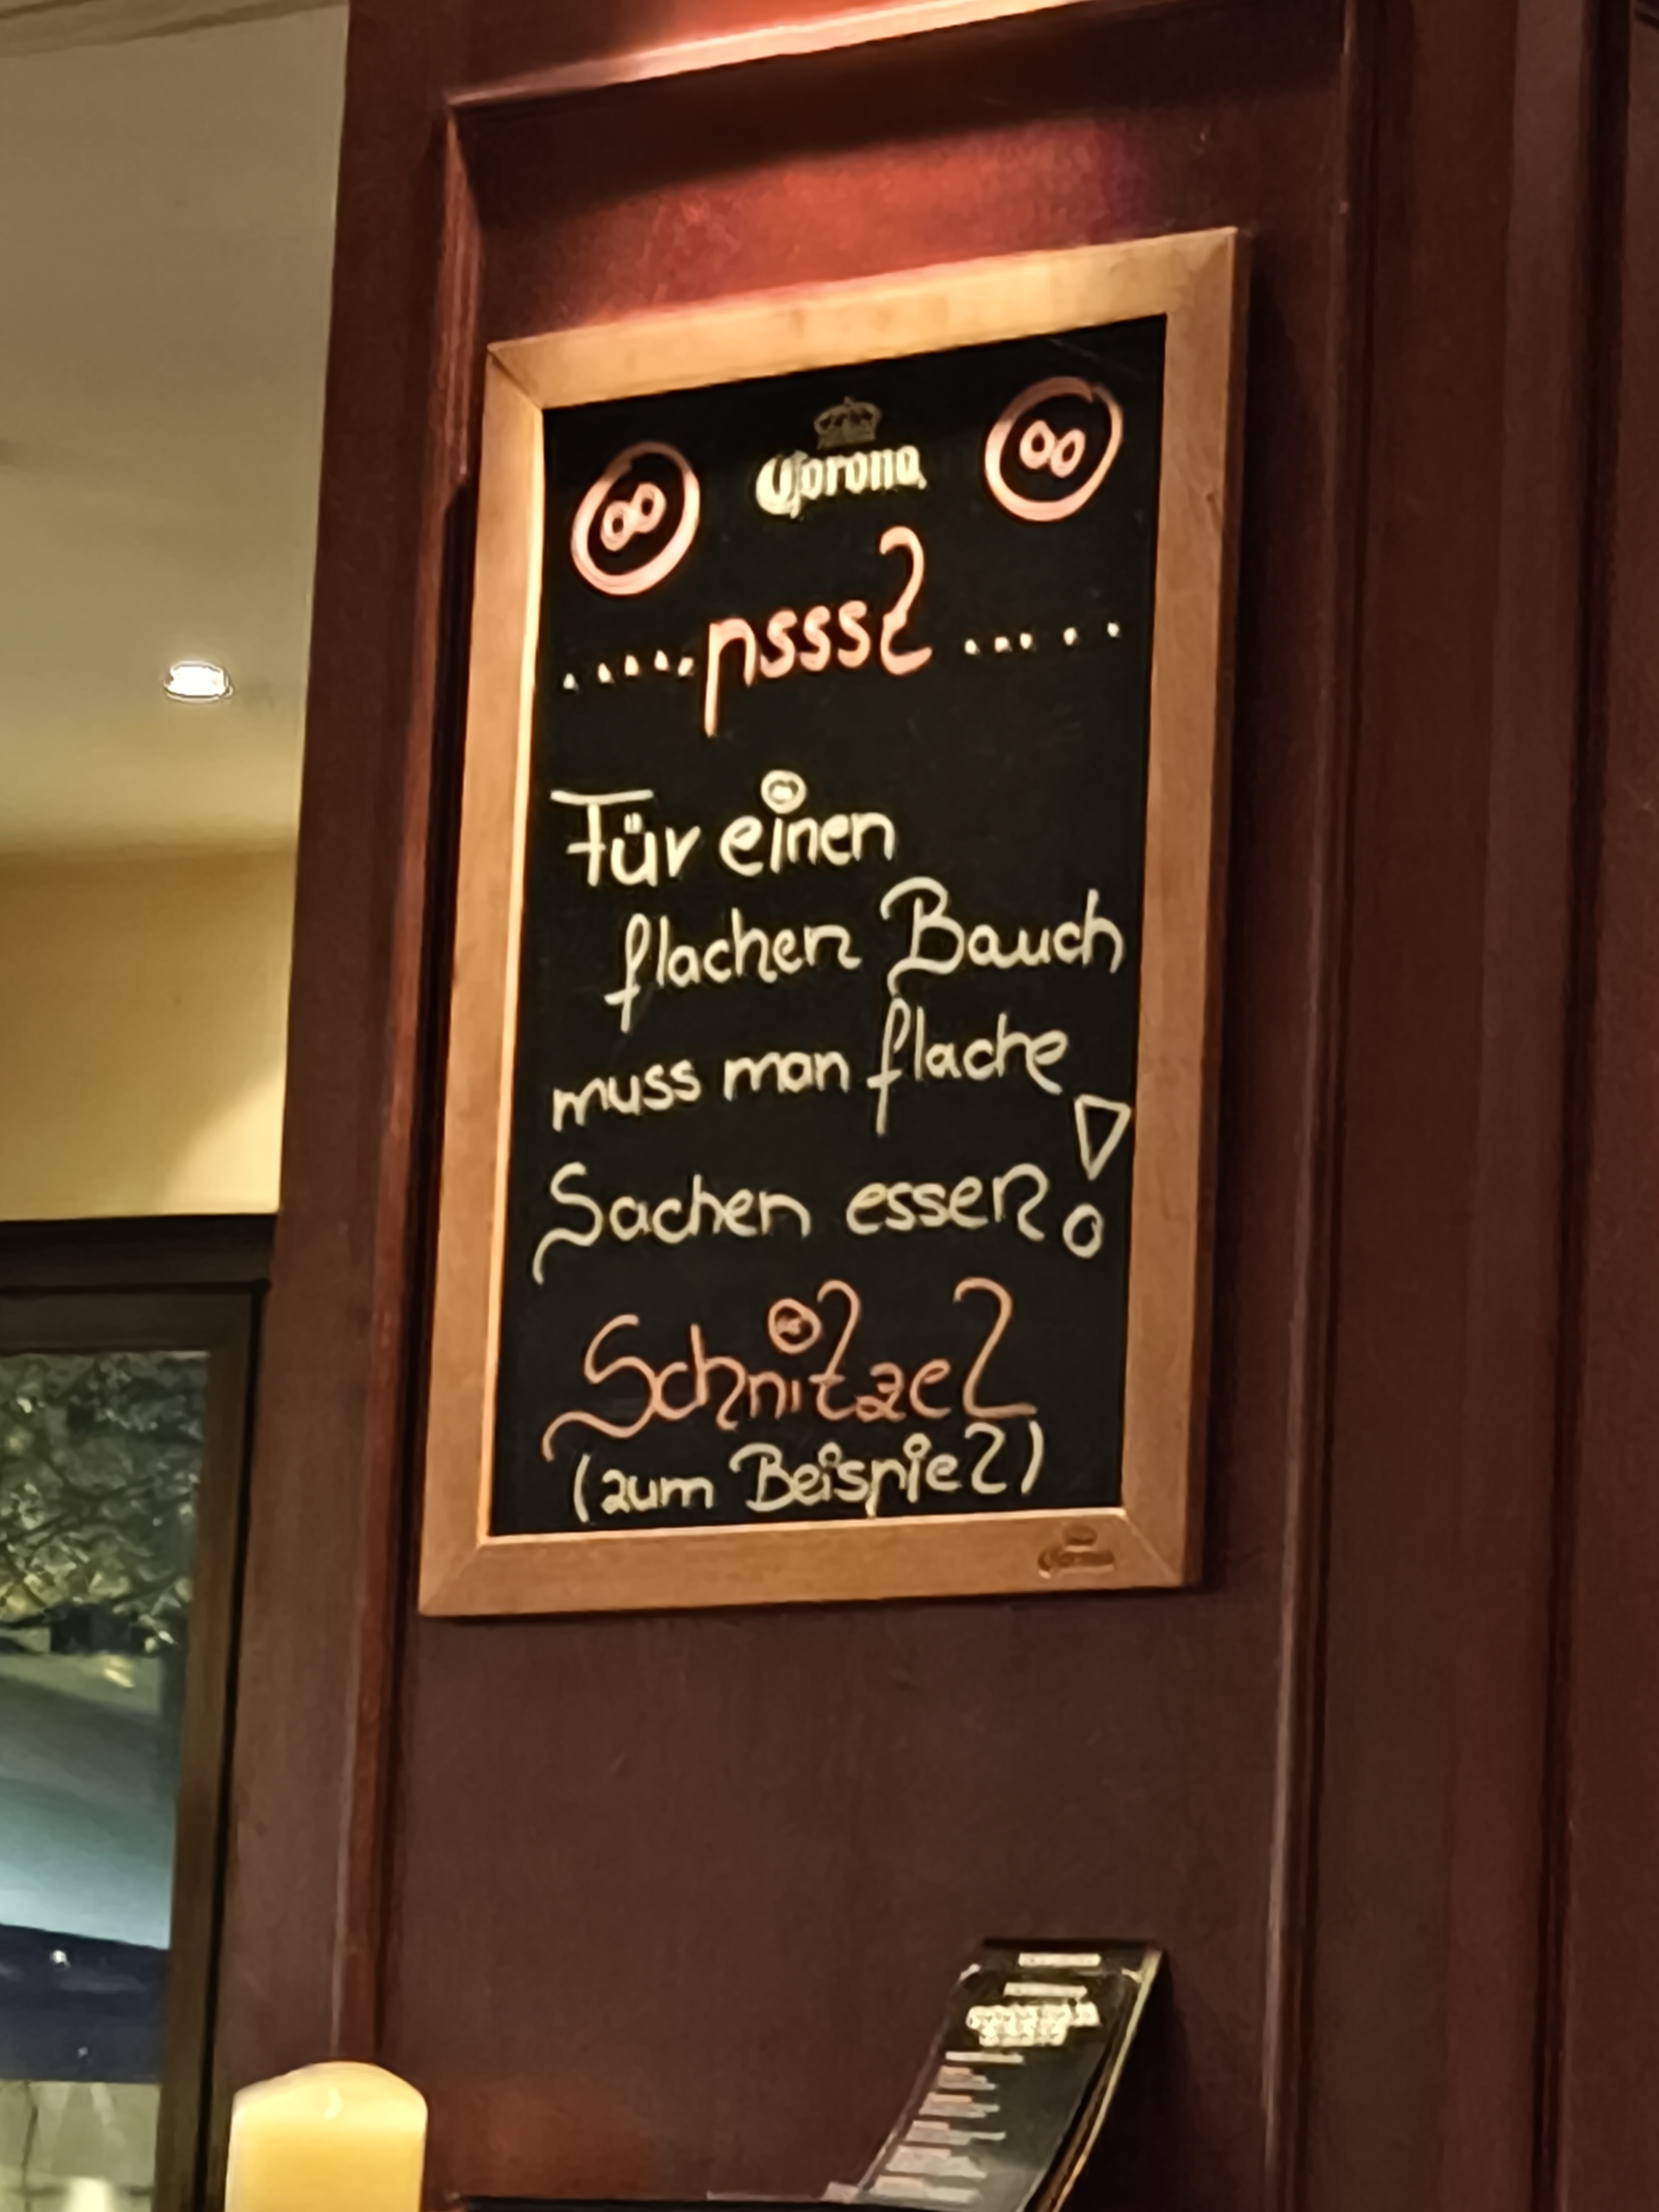 Corona
.....pssst.....
Für einen
flachen Bauch
muss man flache
Sachen essen!
Schnitzel
(zum Beispiel)
Corona